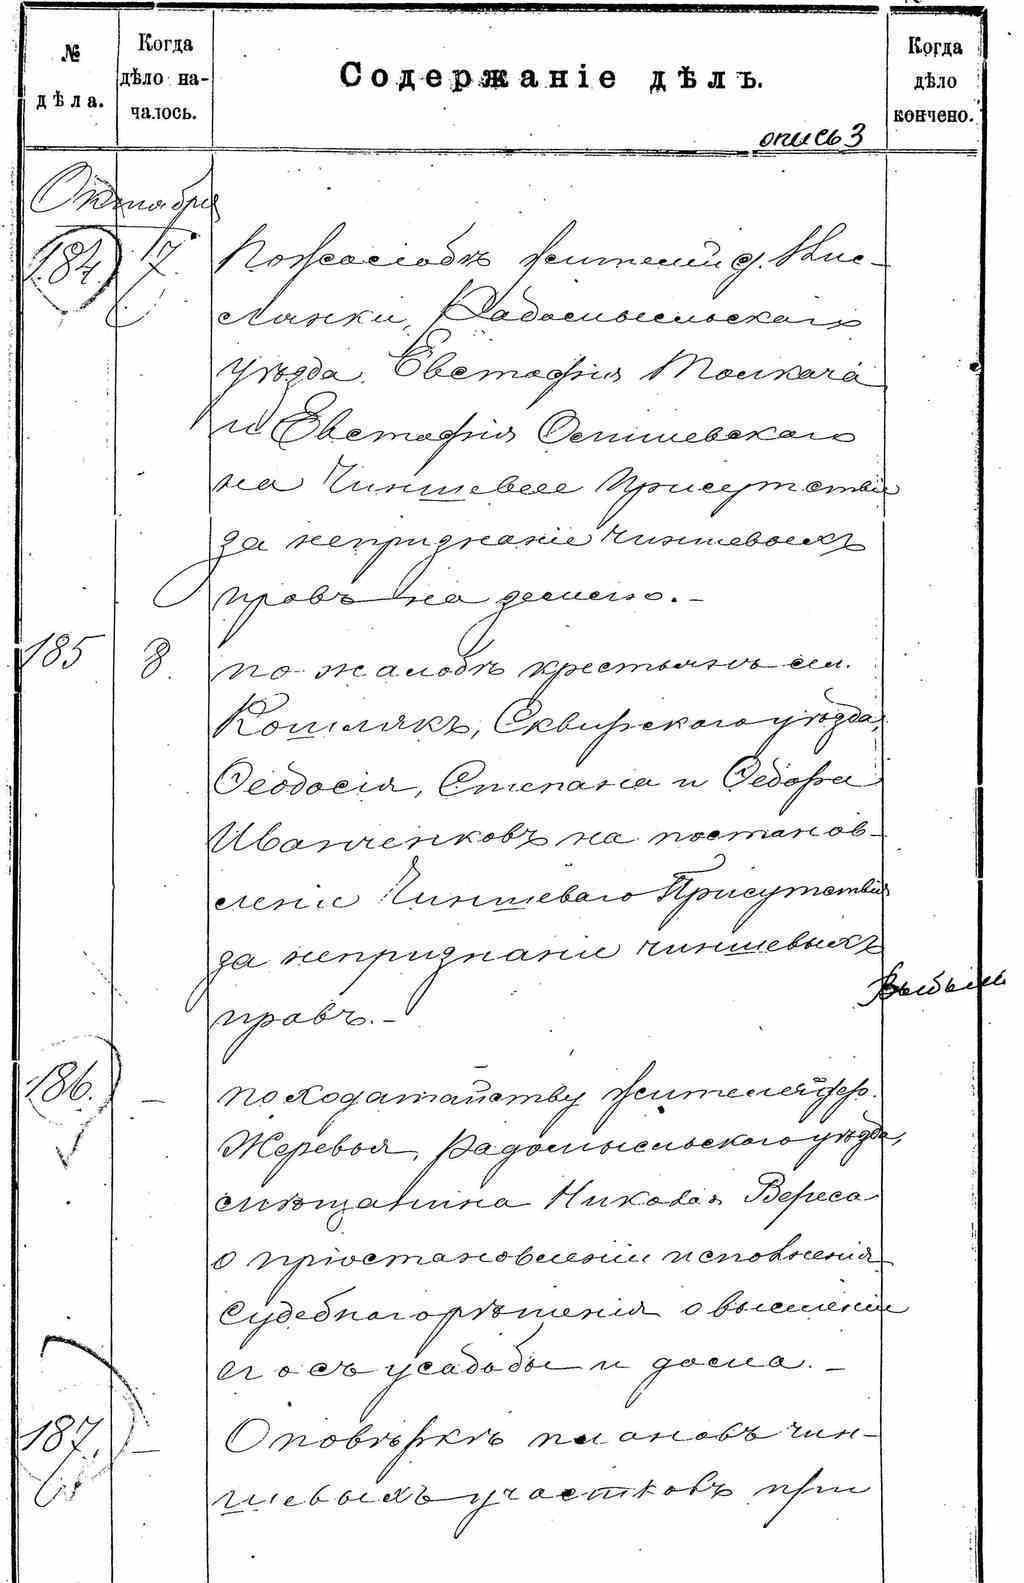 № дѣла.
Когда дѣло началось.
Содержаніе дѣлъ.
Когда дѣло кончено.
опись 3
Октября
184. 7. По жалобѣ жителей д. Кис-
лянки, Радомысльскаго
уѣзда, Евстафія Толкача
и Евстафія Осташевскаго
на Чиншевое Присутствіе
за непризнаніе чиншевыхъ
правъ на землю. –
185 8. по жалобѣ крестьянъ сел.
Кошлякъ, Сквирскаго уѣзда,
Ѳеодосія, Степана и Ѳедора
Иванченковъ на постанов-
леніе Чиншеваго Присутствія
за непризнаніе чиншевыхъ
правъ. –
Выбыли
186. – по ходатайству жителей дер.
Жеревья, Радомысльскаго уѣзда,
мѣщанина Николая Вереса
о пріостановленіи исполненія
судебнаго рѣшенія о выселеніи
его съ усадьбы и дома. –
187. – О повѣркѣ плановъ чин-
шевыхъ участковъ при